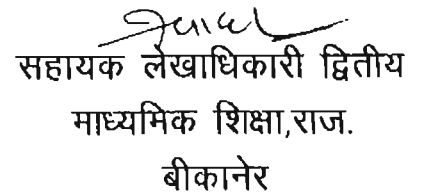 सहायक लेखाधिकारी द्वितीय
माध्यमिक शिक्षा,राज.
बीकानेर